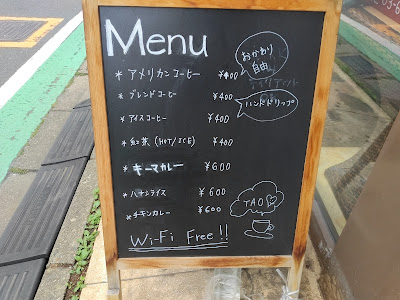 Menu
* アメリカンコーヒー ¥400
おかわり
自由
* ブレンドコーヒー ¥400
ハンドドリップ
* アイスコーヒー ¥400
* 紅茶 (HOT/ICE) ¥400
* キーマカレー ¥600
* ハヤシライス ¥600
* チキンカレー ¥600
TAO
Wi-Fi Free!!